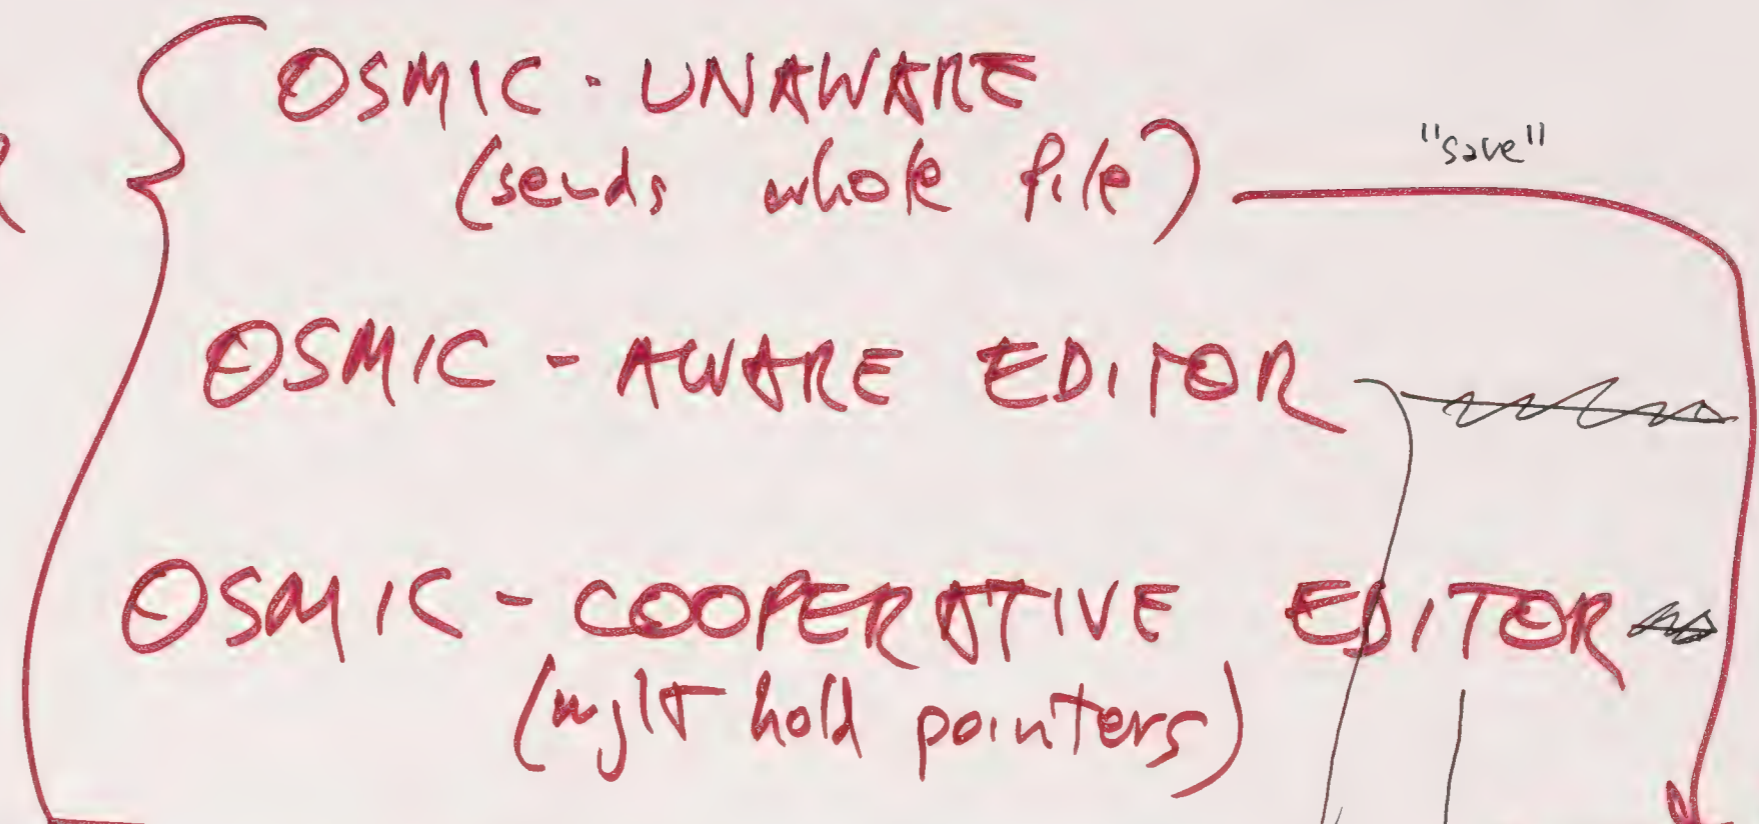 OSMIC - UNAWARE
(sends whole file)
"save"
OSMIC - AWARE EDITOR
OSMIC - COOPERATIVE EDITOR
(might hold pointers)